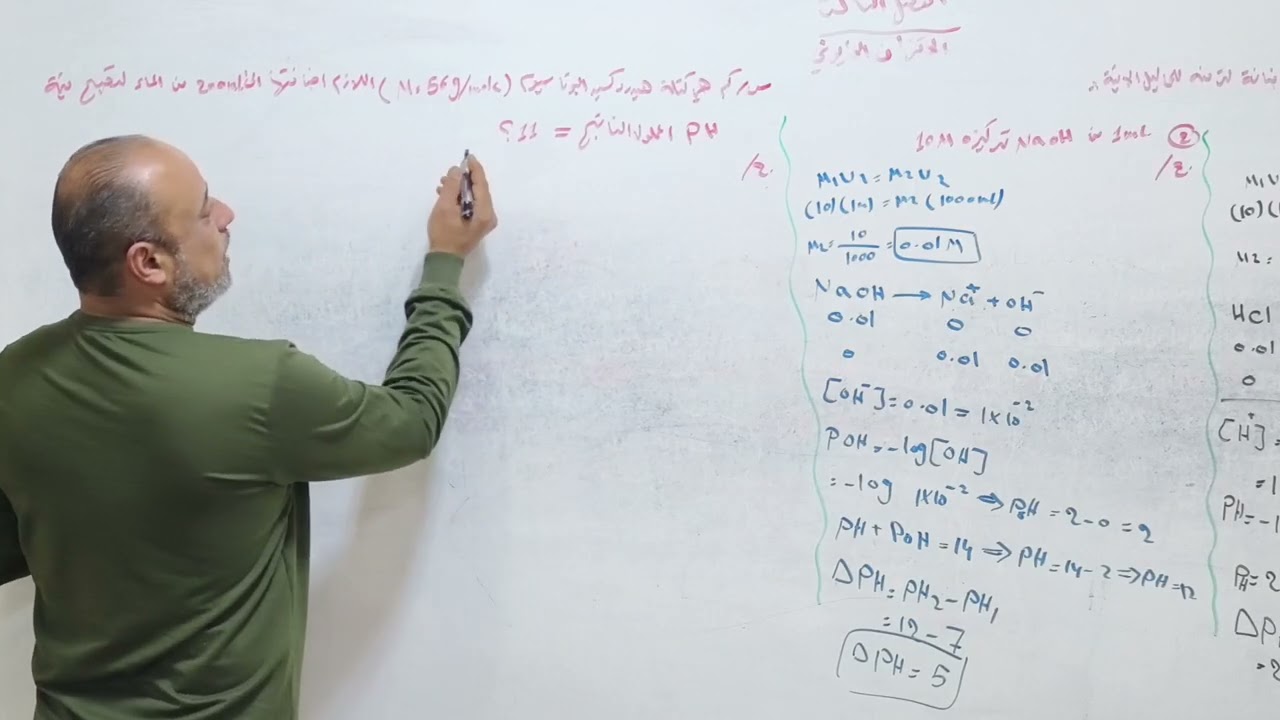 الفصل الثالث
الاتزان الايوني
س/ كم هي كتلة هيدروكسيد البوتاسيوم (M=56g/mole) اللازم اضافتها الى 200ml من الماء لتصبح قيمة
PH المحلول الناتج = 11؟
ج/
② 1ml من NaOH تركيزه 10M
ج/
M₁V₁ = M₂V₂
(10)(1ml) = M₂(1000ml)
M₂ = 10/1000 = 0.01M
NaOH → Na⁺ + OH⁻
0.01 0 0
0 0.01 0.01
[OH⁻] = 0.01 = 1X10⁻²
POH = -log[OH]
= -log 1X10⁻² ⇒ POH = 2-0 = 2
PH + POH = 14 ⇒ PH = 14-2 ⇒ PH = 12
ΔPH = PH₂ - PH₁
= 12 - 7
ΔPH = 5
M₁V
(10)(
M2 =
HCl
0.01
0
[H⁺] =
= 1
PH = -1
PH = 2
ΔP